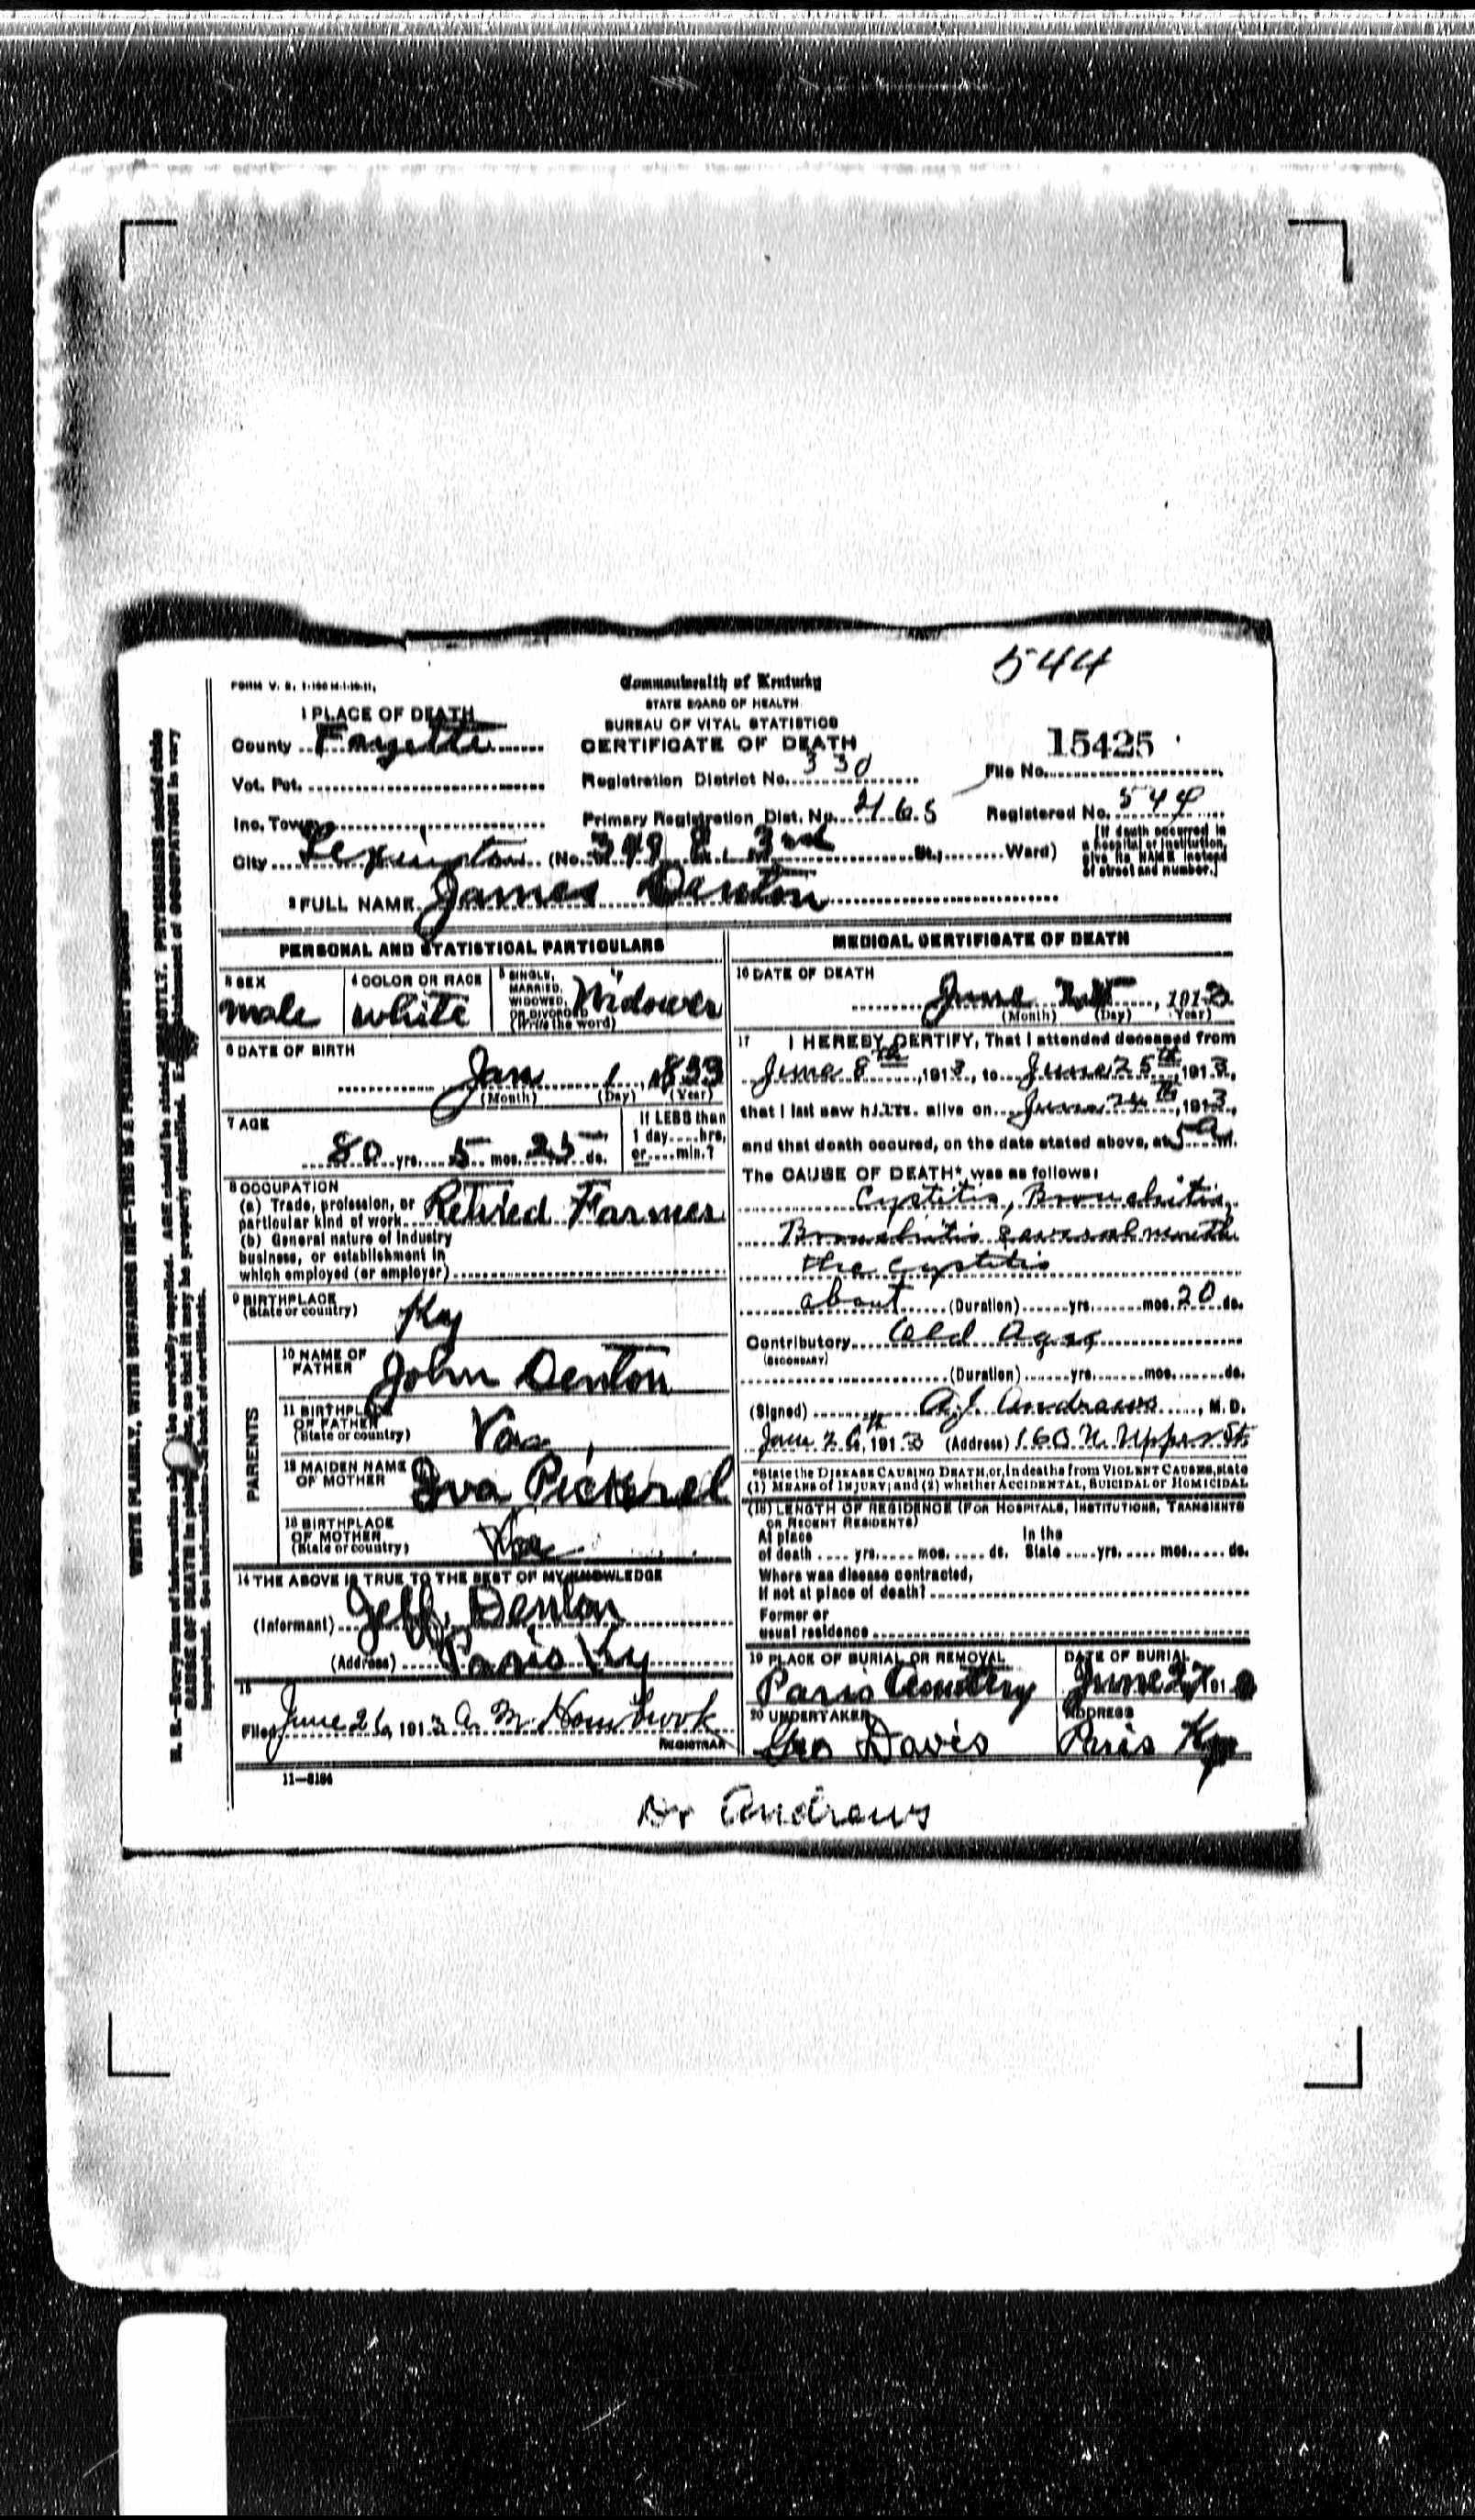 544
FORM V. S. 1-100 M-1-10-11.
Commonwealth of Kentucky
STATE BOARD OF HEALTH
BUREAU OF VITAL STATISTICS
CERTIFICATE OF DEATH
1 PLACE OF DEATH
County Fayette
Vot. Pct.
Inc. Town
City Lexington (No. 3rd St.; Ward)
Registration District No. 330
Primary Registration Dist. No. 2165
15425
File No.
Registered No. 544
[If death occurred in
a hospital or institution,
give its NAME instead
of street and number.]
2 FULL NAME James Denton
PERSONAL AND STATISTICAL PARTICULARS
3 SEX
male
4 COLOR OR RACE
white
5 SINGLE,
MARRIED,
WIDOWED,
OR DIVORCED
(Write the word)
Widower
6 DATE OF BIRTH
Jan 1, 1833
(Month) (Day) (Year)
7 AGE
80 yrs. 5 mos. 25 ds.
If LESS than
1 day....hrs.
or....min.?
8 OCCUPATION
(a) Trade, profession, or
particular kind of work Retired Farmer
(b) General nature of industry
business, or establishment in
which employed (or employer)
9 BIRTHPLACE
(State or country)
Ky
PARENTS
10 NAME OF
FATHER
John Denton
11 BIRTHPLACE
OF FATHER
(State or country)
Va
12 MAIDEN NAME
OF MOTHER
Iva Pickrel
13 BIRTHPLACE
OF MOTHER
(State or country)
Va
14 THE ABOVE IS TRUE TO THE BEST OF MY KNOWLEDGE
(Informant) Jeff Denton
(Address) Paris Ky
15
Filed June 26, 1913 A. M. Hornbrook
REGISTRAR
11—8184
MEDICAL CERTIFICATE OF DEATH
16 DATE OF DEATH
June , 1913
(Month) (Day) (Year)
17 I HEREBY CERTIFY, That I attended deceased from
June 8th, 1913, to June 25th, 1913,
that I last saw him alive on June 24th, 1913,
and that death occured, on the date stated above, at 5 a m.
The CAUSE OF DEATH* was as follows:
Cystitis, Bronchitis,
Bronchitis several month
the Cystitis
about (Duration) yrs. mos. 20 ds.
Contributory Old Age
(SECONDARY)
(Duration) yrs. mos. ds.
(Signed) A.J. Andrews, M. D.
June 26th, 1913 (Address) 160 N Upper St
*State the DISEASE CAUSING DEATH, or, in deaths from VIOLENT CAUSES, state
(1) MEANS of INJURY; and (2) whether ACCIDENTAL, SUICIDAL or HOMICIDAL
(18) LENGTH OF RESIDENCE (FOR HOSPITALS, INSTITUTIONS, TRANSIENTS
OR RECENT RESIDENTS)
At place In the
of death .... yrs. .... mos. .... ds. State .... yrs. .... mos. .... ds.
Where was disease contracted,
if not at place of death?
Former or
usual residence
19 PLACE OF BURIAL OR REMOVAL
Paris Cemetery
DATE OF BURIAL
June 27, 191
20 UNDERTAKER
Geo Davis
ADDRESS
Paris Ky
Dr Andrews
WRITE PLAINLY, WITH UNFADING INK—THIS IS A PERMANENT RECORD
N. B.—Every item of information should be carefully supplied. AGE should be stated EXACTLY. PHYSICIANS should state
CAUSE OF DEATH in plain terms, so that it may be properly classified. Exact statement of OCCUPATION is very
important. See instructions on back of certificate.